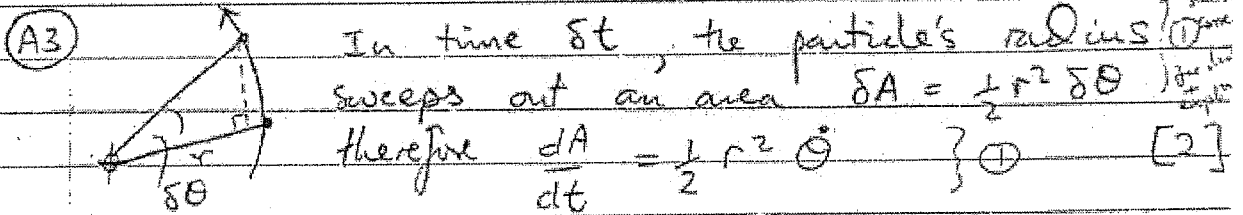 A3 In time δt, the particle's radius ①
sweeps out an area δA = 1/2 r² δθ
therefore dA/dt = 1/2 r² θ̇ } ① [2]
r
δθ